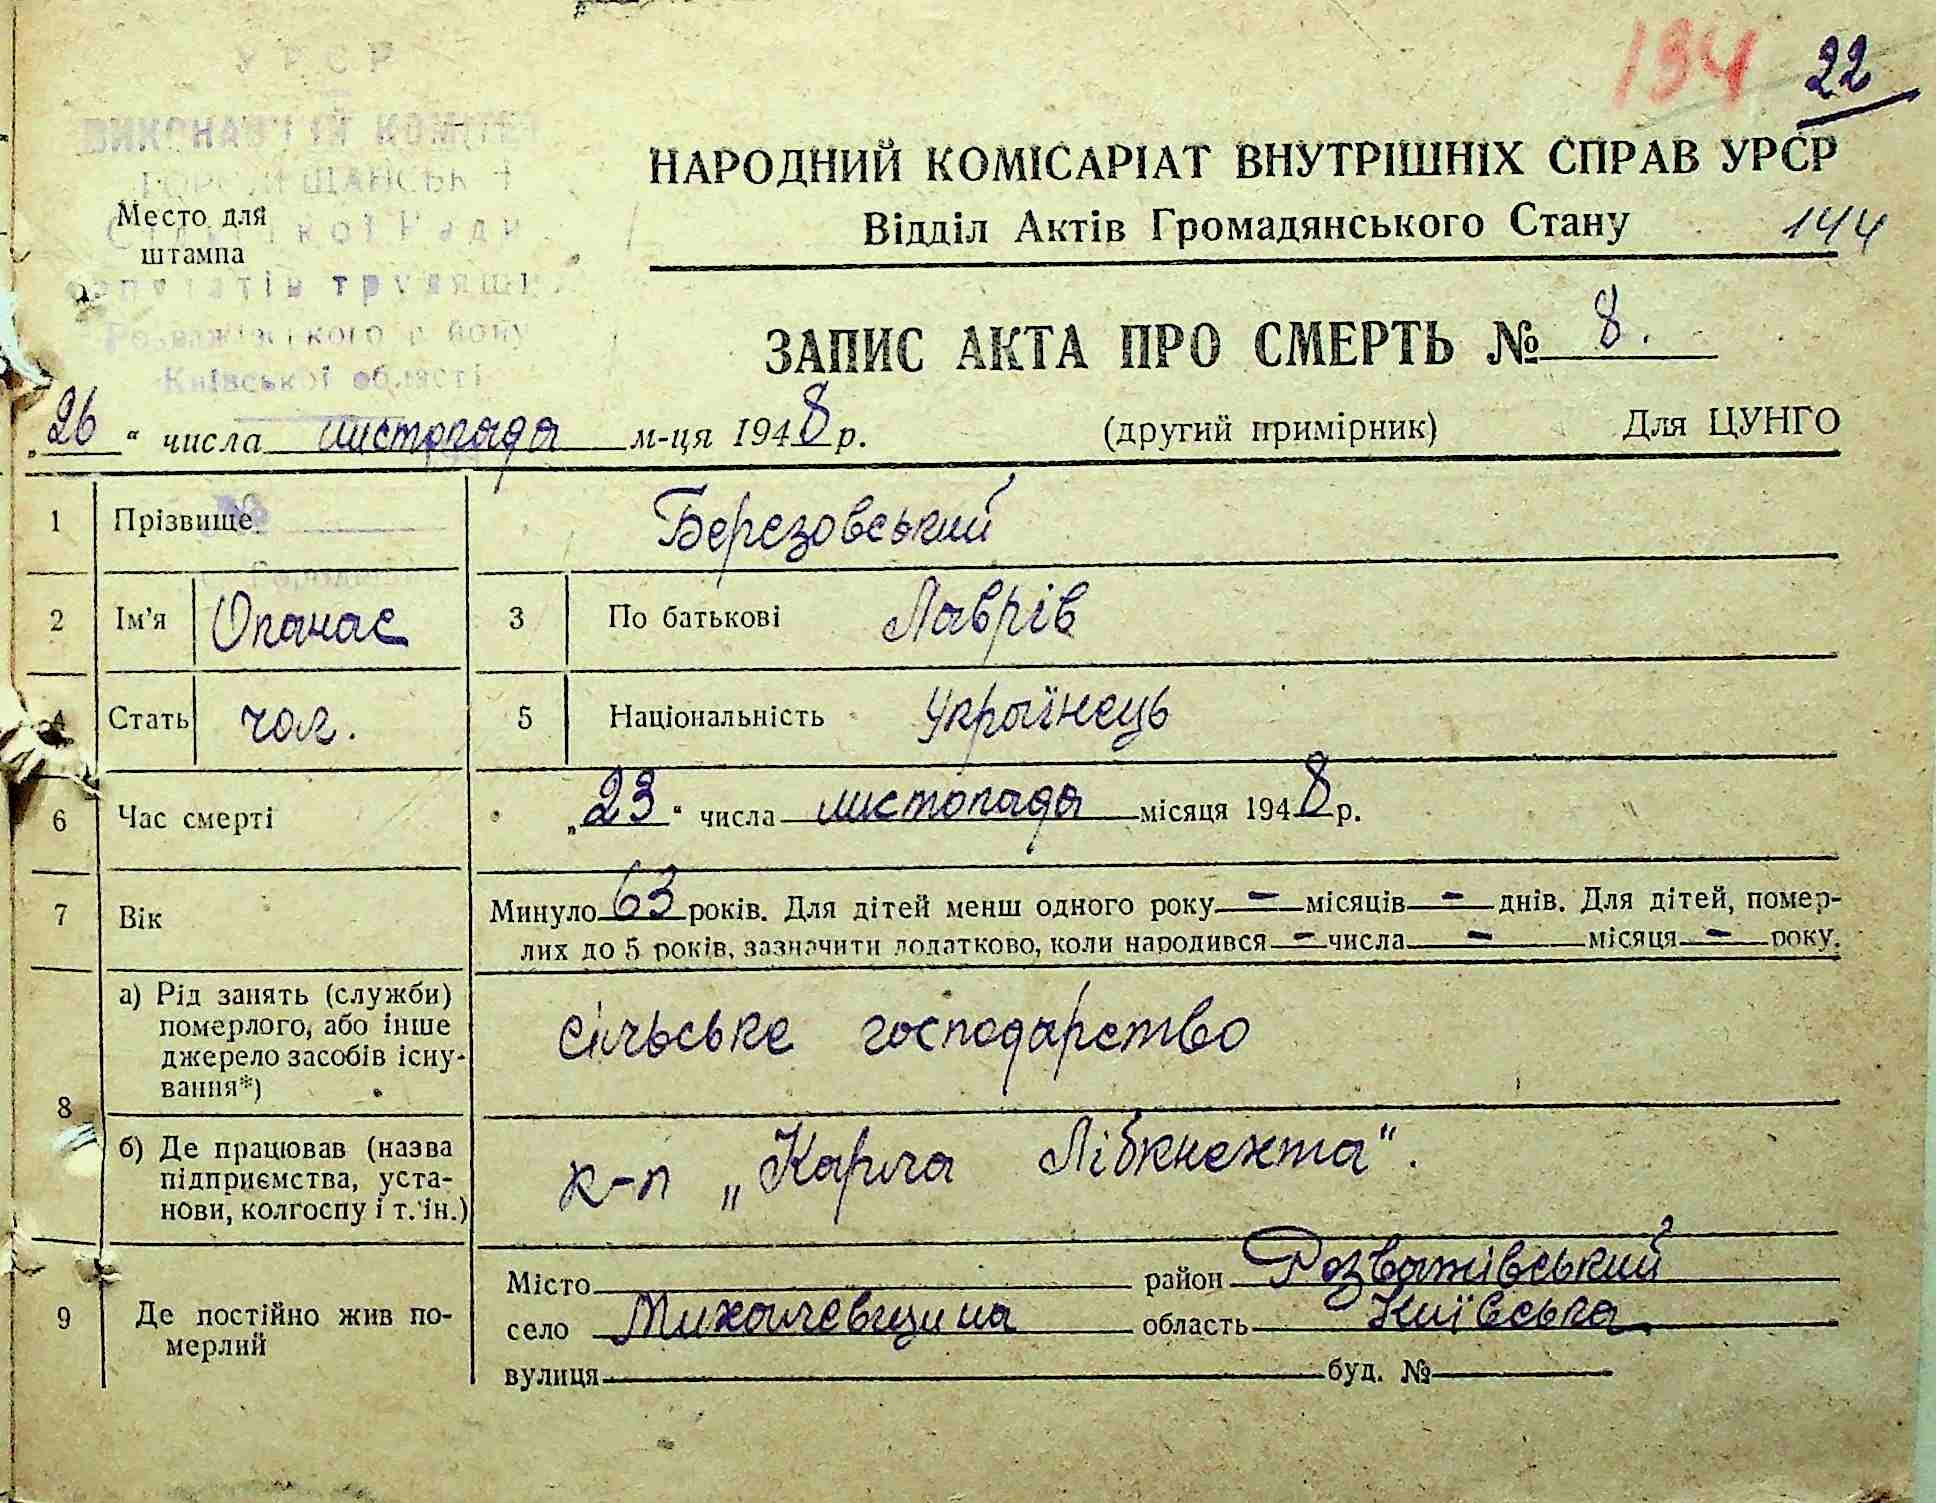 194 22
УРСР
ВИКОНАВЧИЙ КОМІТЕТ
НАРОДНИЙ КОМІСАРІАТ ВНУТРІШНІХ СПРАВ УРСР
Место для
штампа
Відділ Актів Громадянського Стану 144
депутатів трудящих
Розважівського району
Київської області
ЗАПИС АКТА ПРО СМЕРТЬ № 8.
„26“ числа листопада м-ця 1948 р. (другий примірник) Для ЦУНГО
1 Прізвище Березовський
2 Ім'я Опанас 3 По батькові Лаврів
4 Стать чол. 5 Національність Українець
6 Час смерті „23“ числа листопада місяця 1948 р.
7 Вік Минуло 63 років. Для дітей менш одного року — місяців — днів. Для дітей, помер-
лих до 5 років, зазначити додатково, коли народився — числа — місяця — року.
8 а) Рід занять (служби)
померлого, або інше
джерело засобів існу-
вання*)
сільське господарство
б) Де працював (назва
підприємства, уста-
нови, колгоспу і т. ін.)
к-п „Карла Лібкнехта“.
9 Де постійно жив по-
мерлий
Місто район Розважівський
село Михалевщина область Київська
вулиця буд. №